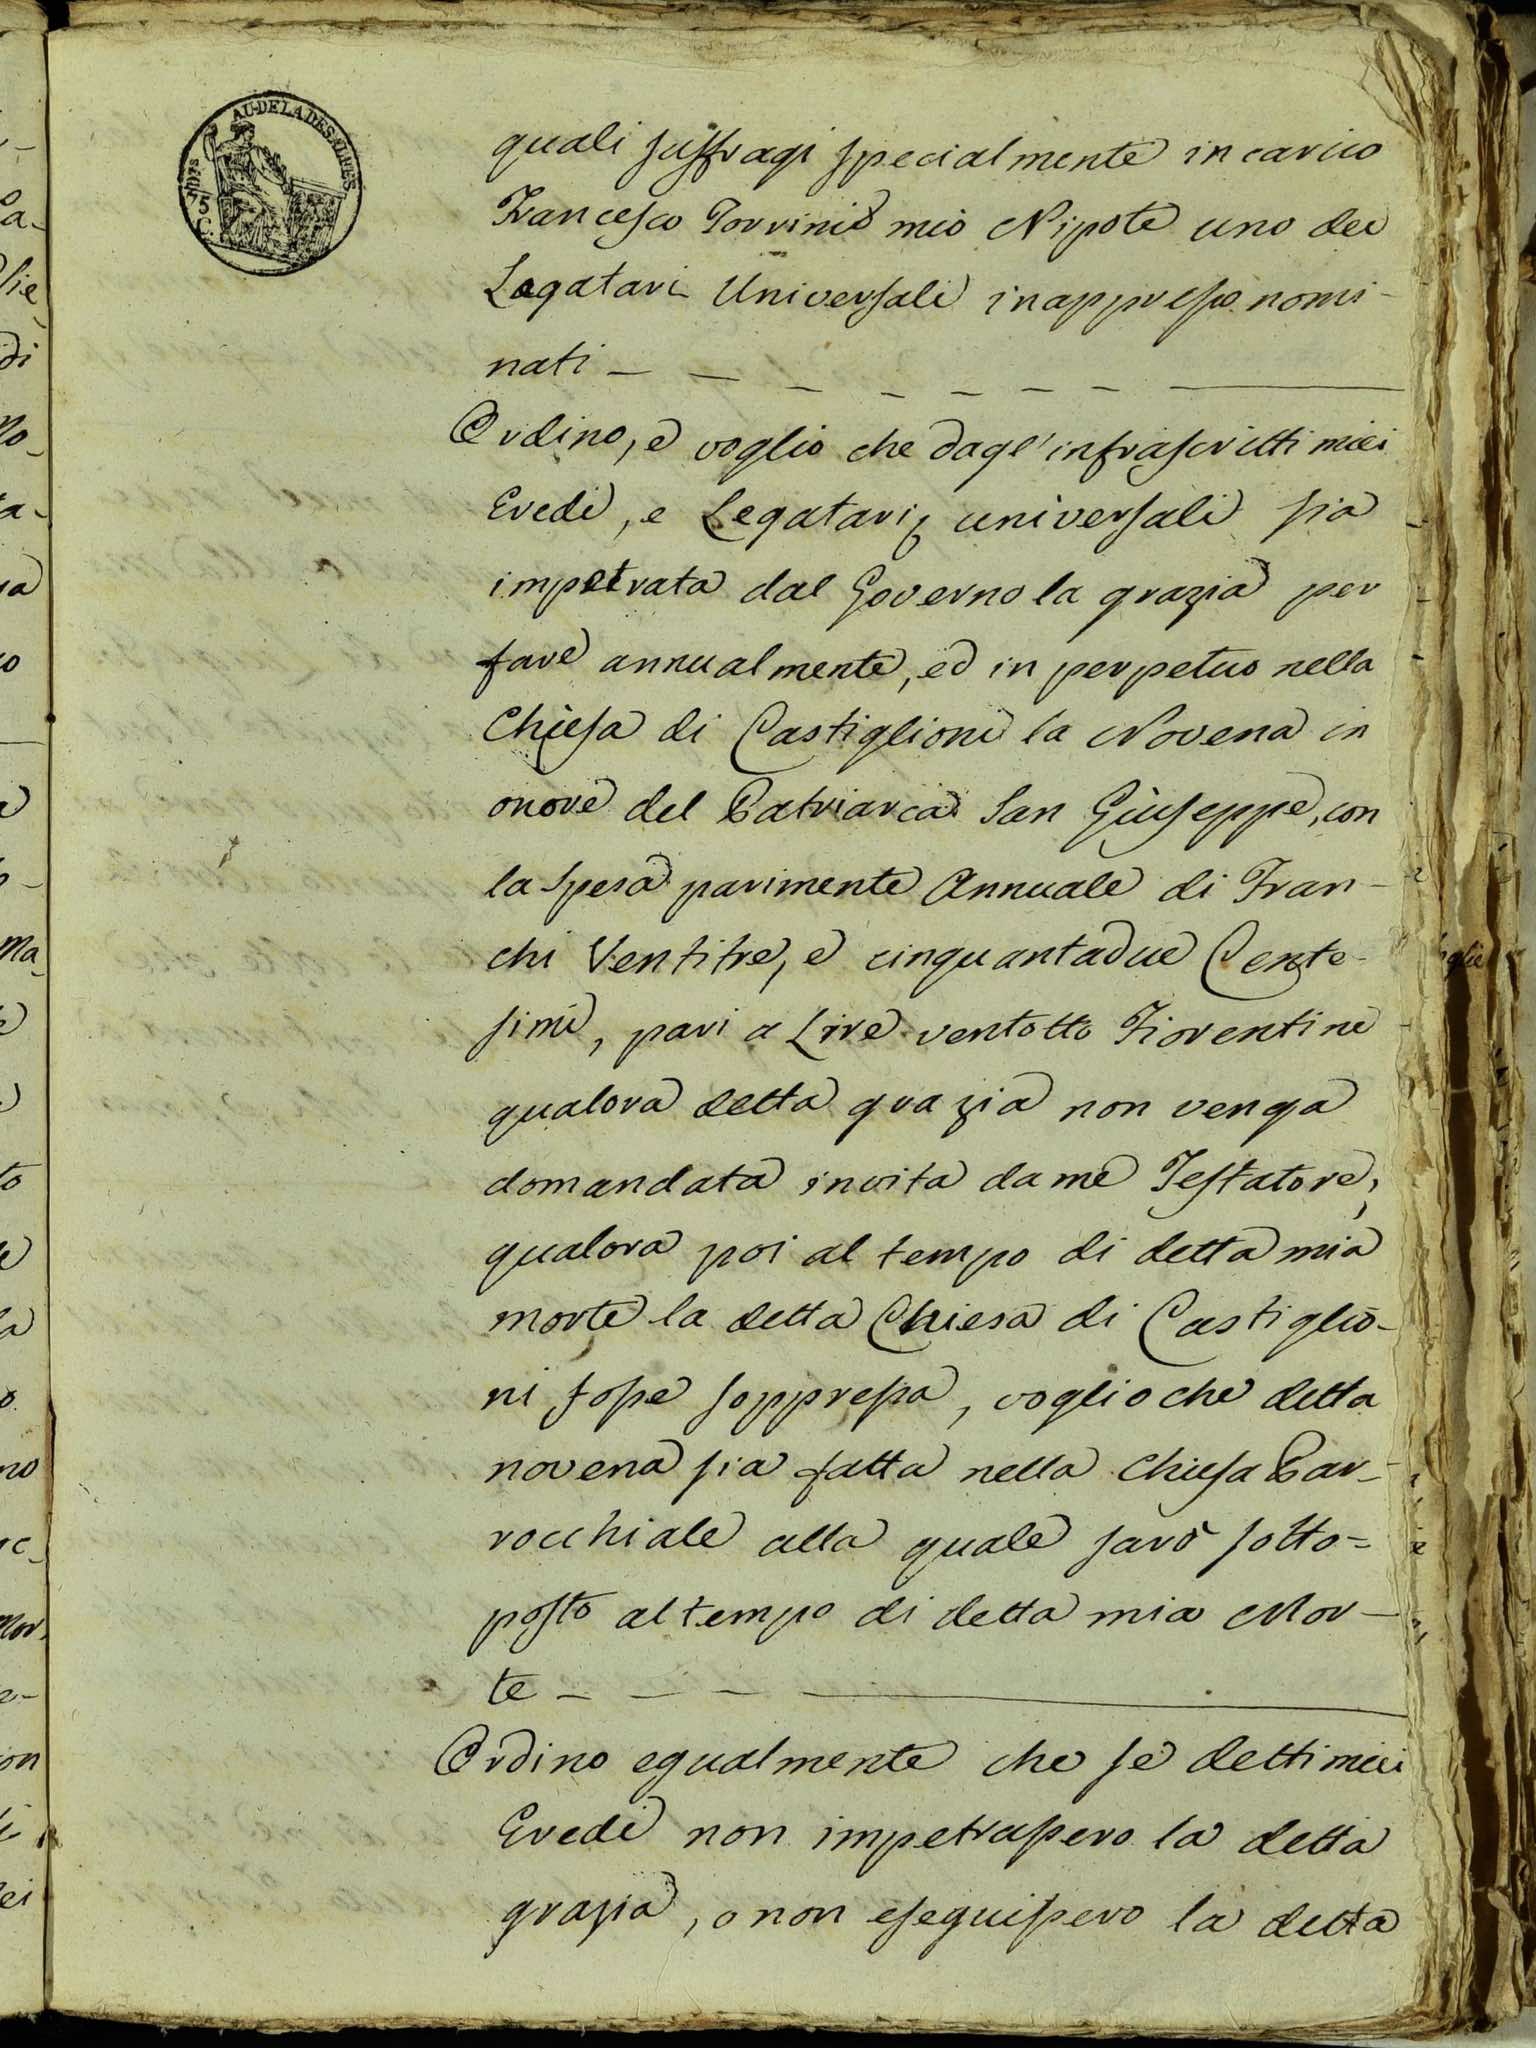 AU-DELA DES ALPES
75
C.
quali suffragi specialmente incarico
Francesco Torrini mio Nipote uno dei
Legatari Universali inappresso nomi-
nati
Ordino, e voglio che dagl'infrascritti miei
Eredi, e Legatarj universali sia
impetrata dal Governo la grazia per
fare annualmente, ed in perpetuo nella
Chiesa di Castiglioni la Novena in
onore del Patriarca San Giuseppe, con
la spesa parimente Annuale di Fran-
chi Ventitre, e cinquantadue Cente-
simi, pari a Lire ventotto Fiorentine
qualora detta grazia non venga
domandata in vita da me Testatore,
qualora poi al tempo di detta mia
morte la detta Chiesa di Castiglio-
ni fosse soppressa, voglio che detta
novena sia fatta nella Chiesa Par-
rocchiale alla quale sarò sotto=
posto al tempo di detta mia Mor-
te
Ordino egualmente che se detti miei
Eredi non impetrassero la detta
grazia, o non eseguissero la detta